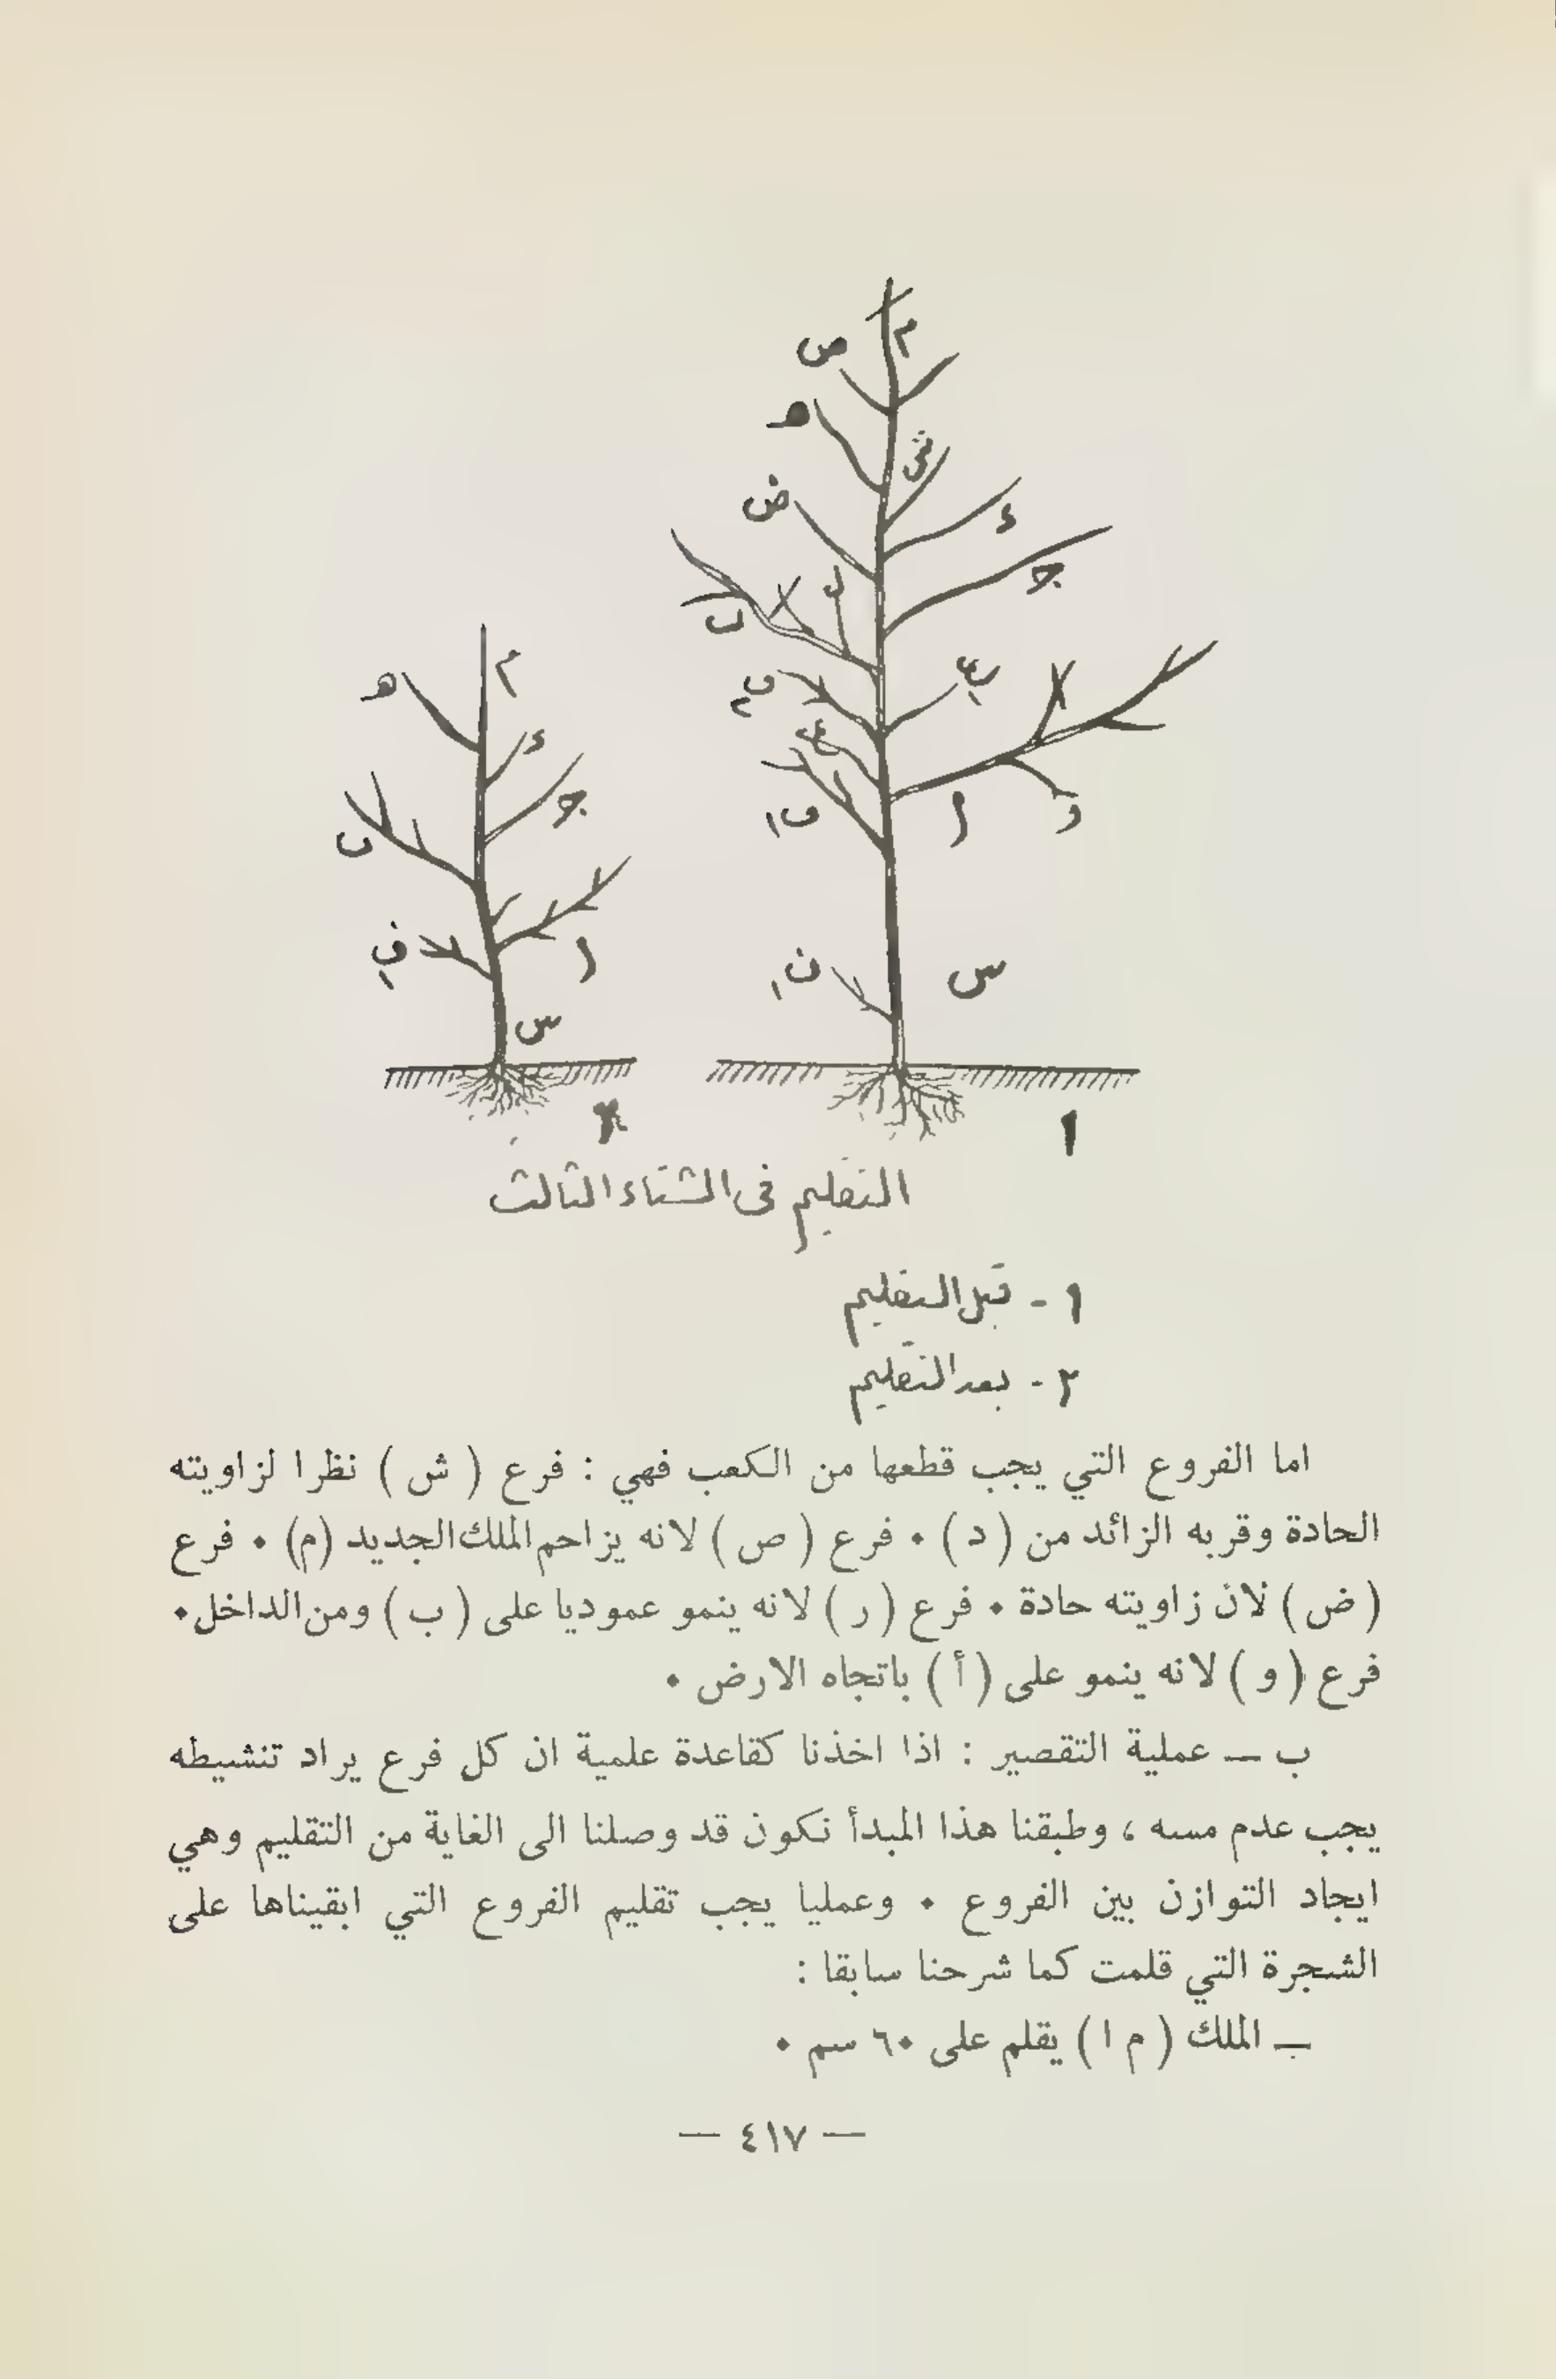 م
ص
هـ
ش
ض
ء
جـ
ر
ب
ا
و
س
م
هـ
ء
جـ
ب
ا
س
٢
١
التقليم فى الشتاء الثالث
١ - قبل التقليم
٢ - بعد التقليم
اما الفروع التي يجب قطعها من الكعب فهي : فرع ( ش ) نظرا لزاويته
الحادة وقربه الزائد من ( د ) ٠ فرع ( ص ) لانه يزاحم الملك الجديد (م) ٠ فرع
( ض ) لان زاويته حادة ٠ فرع ( ر ) لانه ينمو عموديا على ( ب ) ومن الداخل٠
فرع ( و ) لانه ينمو على ( أ ) باتجاه الارض ٠
ب — عملية التقصير : اذا اخذنا كقاعدة علمية ان كل فرع يراد تنشيطه
يجب عدم مسه ، وطبقنا هذا المبدأ نكون قد وصلنا الى الغاية من التقليم وهي
ايجاد التوازن بين الفروع ٠ وعمليا يجب تقليم الفروع التي ابقيناها على
الشجرة التي قلمت كما شرحنا سابقا :
— الملك ( م ا ) يقلم على ٦٠ سم ٠
— ٤١٧ —